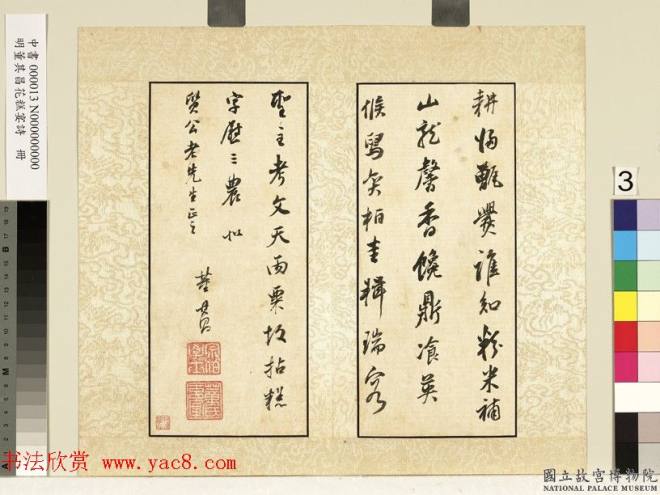 中書 000013 N000000000
明董其昌花糕宴詩 冊
誰知粉米補
山龍馨香饒鼎飡英
柏圭輯瑞
聖主考文天雨粟故拈糕
字慰三農
公老先生正之
董其昌
3
书法欣赏 www.yac8.com
國立故宮博物院
NATIONAL PALACE MUSEUM